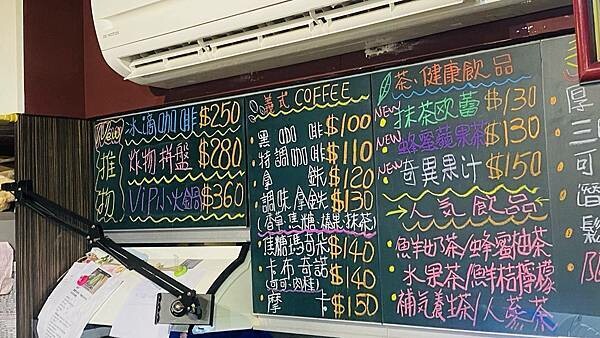 New
推物
冰滴咖啡 $250
炸物拼盤 $280
ViP小火鍋 $360
義式COFFEE
黑咖啡 $100
特調咖啡 $110
拿鐵 $120
調味拿鐵 $130
(香草.焦糖.榛果.抹茶)
焦糖瑪奇朵 $140
卡布奇諾 $140
(可可.肉桂)
摩卡 $150
茶.健康飲品
NEW 抹茶欧蕾 $130
NEW 蜂蜜蘋果茶 $130
NEW 奇異果汁 $150
人気飲品
鮮奶茶/蜂蜜柚茶
水果茶/鮮桔檸檬
補気養生茶/人蔘茶
厚
三
可
潛
鬆